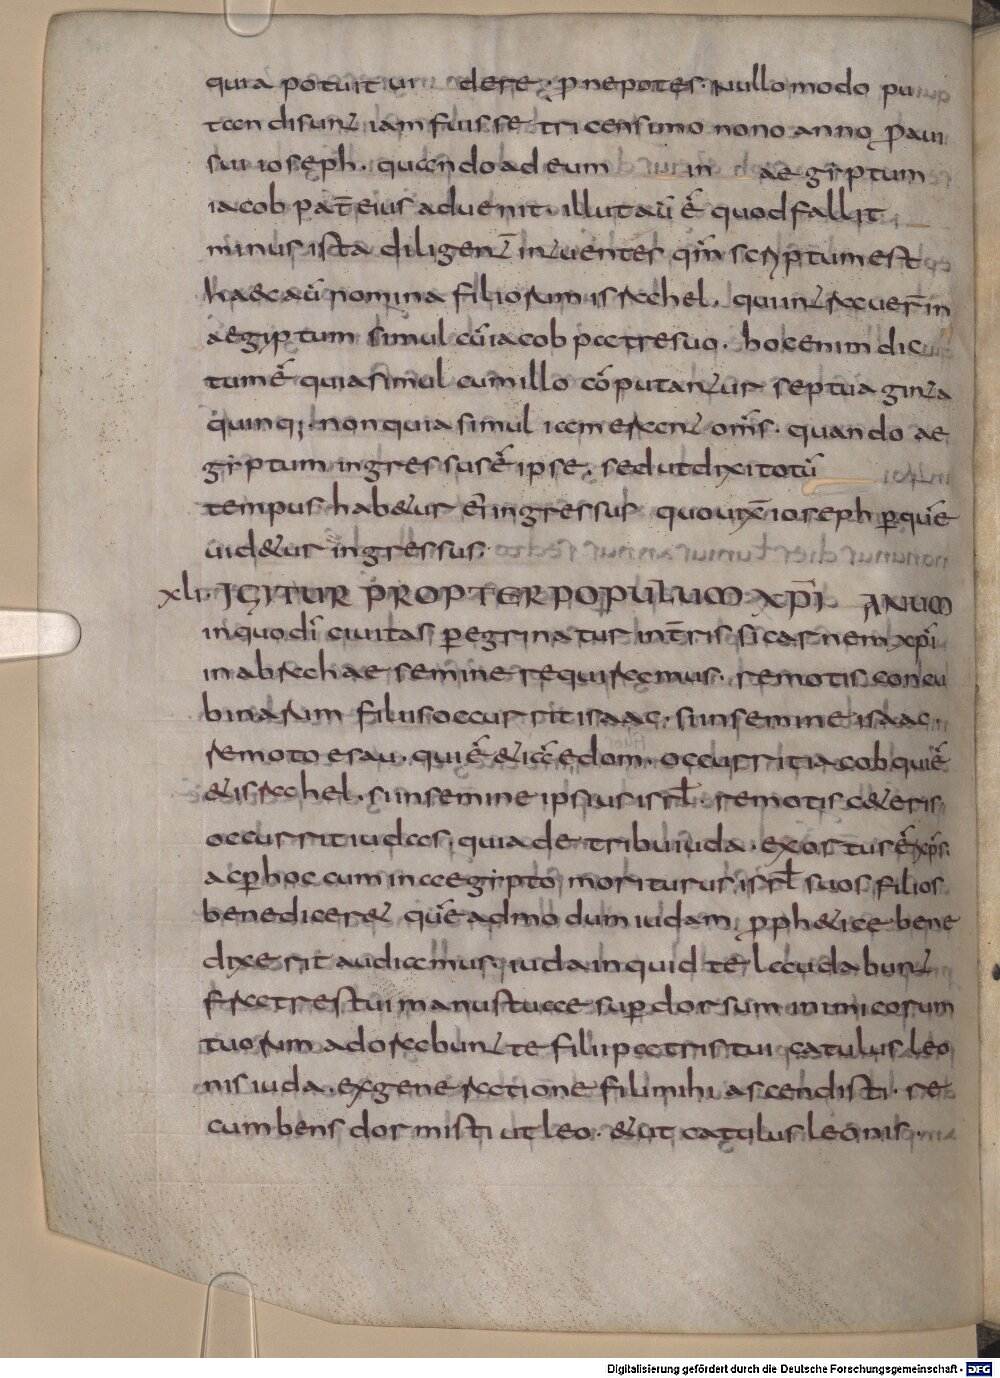 quia potuit ui dere · p̄ nepotes · Nullo modo pu
tandi sunt iam fuisse tricensimo nono anno p̄aui
sui ioseph · quando ad eum in aegiptum
iacob pat̄ eius aduenit · illut aū ē quod fallit
minus ista diligent̄ intuentes qm̄ scriptum est
haec aū nomina filiorum israhel · qui intrauer̄ in
aegyptum simul cū iacob patre suo · hoc enim dic
tum ē quia simul cum illo cōputantur septuaginta
quinq; · non quia simul iam erant om̄s · quando ae
giptum ingressus ē ipse · sed ut dixi totū
tempus habetur ei ingressus quo uix̄ ioseph per quē
uidetur ingressus ·
xli · IGITUR PROPTER POPULUM XP̄I ANUM
in quo dī ciuitas peregrinatur in tr̄is si carnem xp̄i
in abrahae semine requiramus · remotis concu
binarum filiis occurrit isaac · si in semine isaac ·
remoto esau · qui ē et iā edom · occurrit iacob qui ē
et israhel · si in semine ipsius isrl̄ · remotis ceteris
occurrit iudas · quia de tribu iuda · exortus ē xp̄s ·
ac per hoc cum in aegipto moriturus isrl̄ suos filios
benediceret quē ad modum iudam prophetice bene
dixerit audiamus · iuda inquid te laudabunt
fratres tui manus tuae super dorsum inimicorum
tuorum adorabunt te filii patris tui catulus leo
nis iuda · ex generatione fili mihi ascendisti · re
cumbens dormisti ut leo · et ut catulus leonis ·
Digitalisierung gefördert durch die Deutsche Forschungsgemeinschaft - DFG